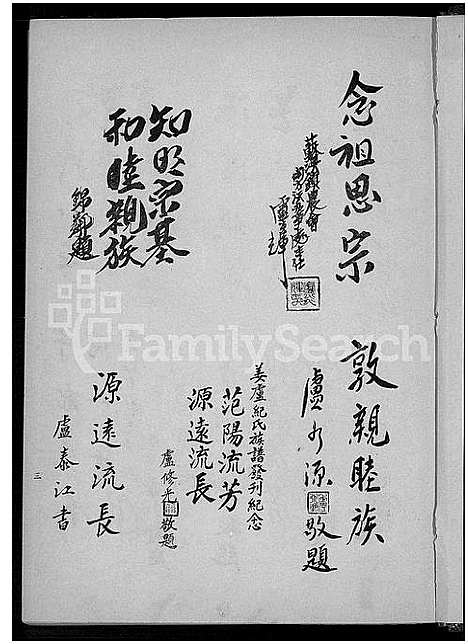 念祖思宗
敦親睦族
盧水源
敬題
姜盧紀氏族譜發刊紀念
范陽流芳
源遠流長
盧修光
敬題
知明宗基
和睦親族
源遠流長
盧泰江書
三
FamilySearch